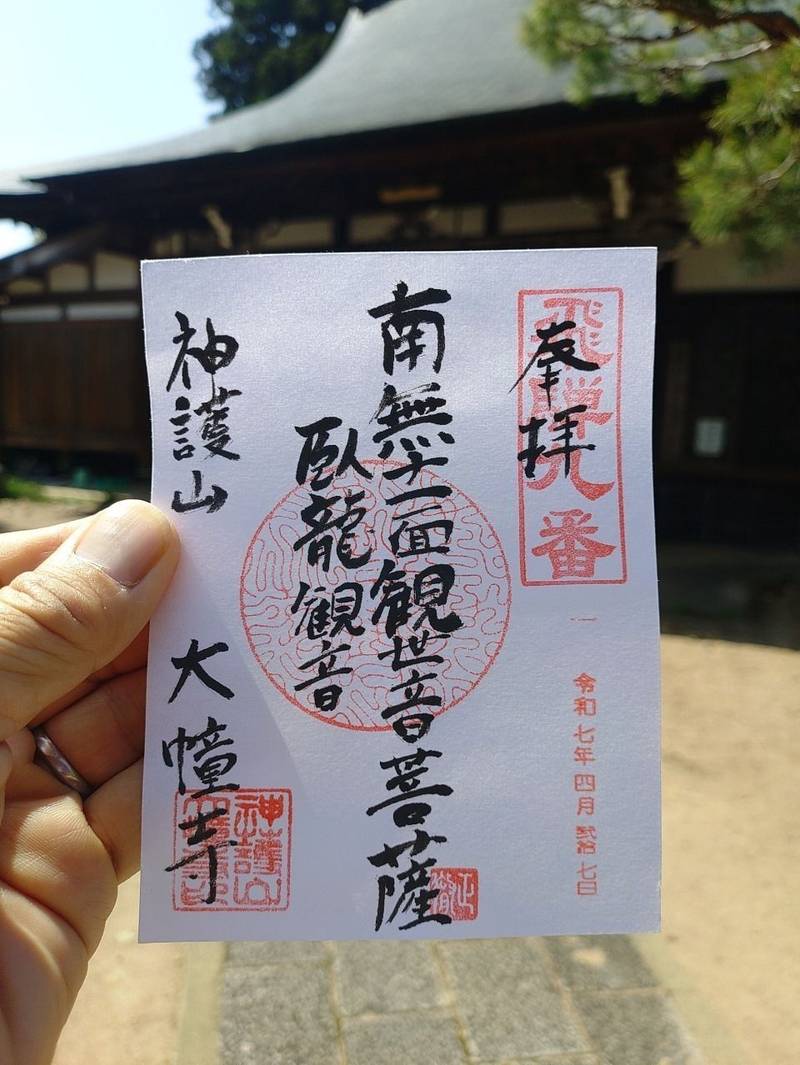 飛騨九番
奉拝
令和七年 四月 弐拾七日
南無十一面観世音菩薩
臥龍観音
神護山 大幢寺
神護山